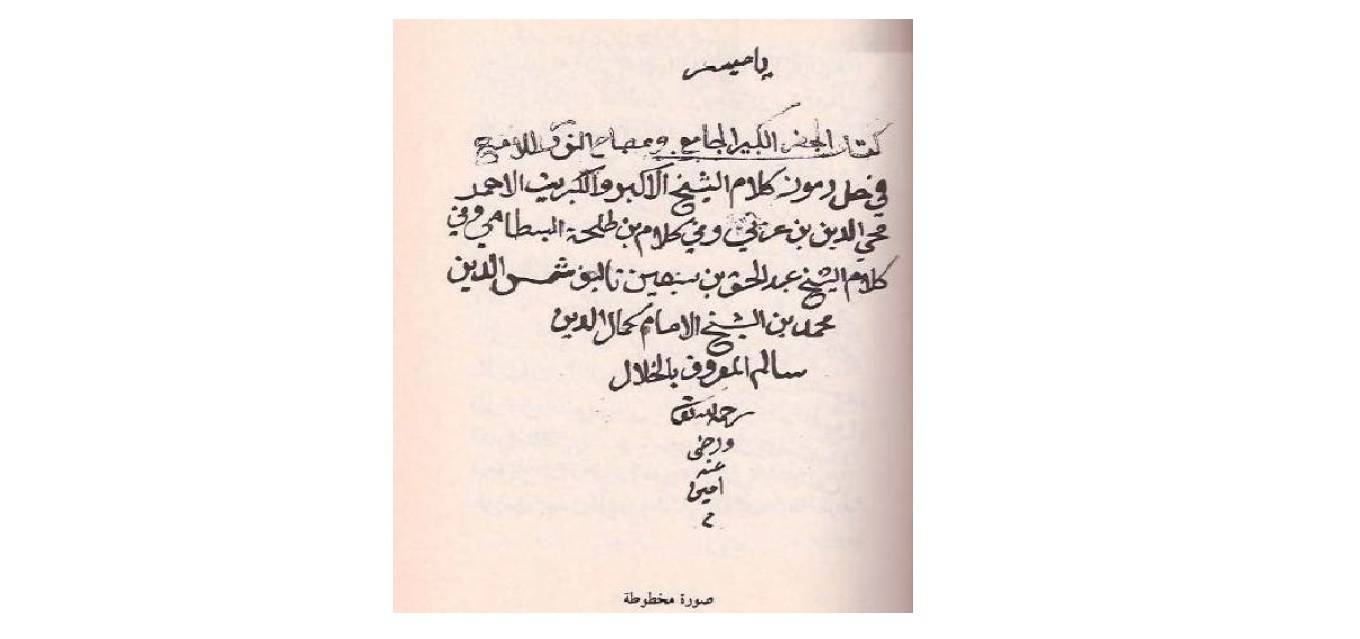 يا ميسر
كتاب الجفر الكبير الجامع ومصباح النور اللامع
في حل رموز كلام الشيخ الاكبر والكبريت الاحمر
محي الدين بن عربي وفي كلام بن طلحة البسطامي وفي
كلام الشيخ عبد الحق بن سبعين تاليف شمس الدين
محمد بن الشيخ الامام كمال الدين
سالم المعروف بالخلال
رحمه الله تعا
ورضى
عنه
امين
م
صورة مخطوطة